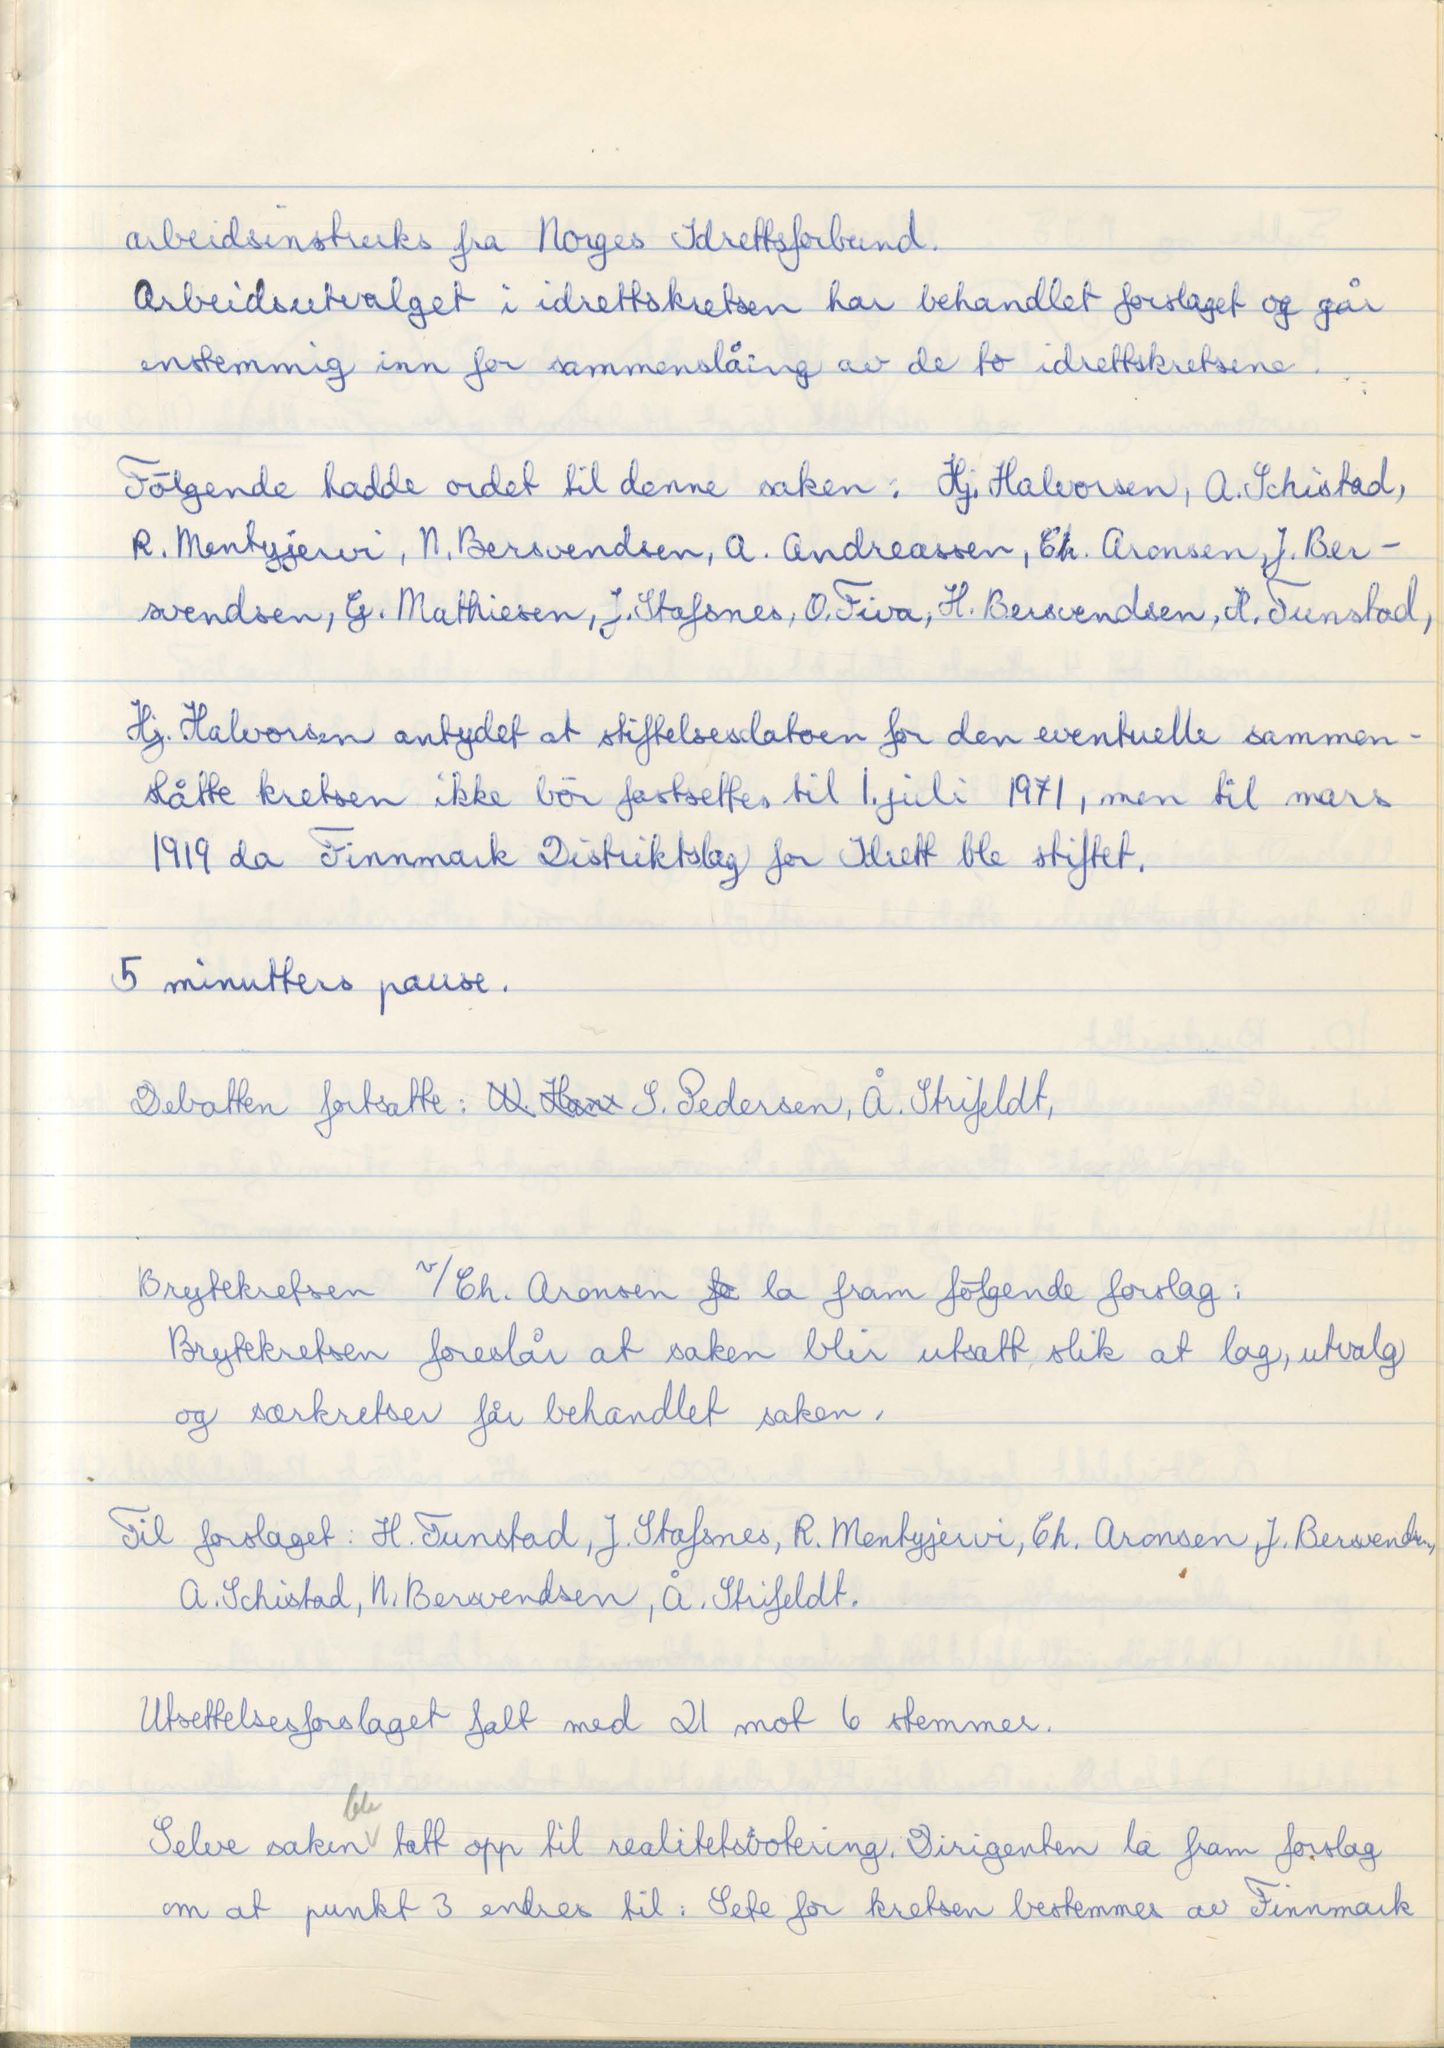 arbeidsinstruks fra Norges Idrettsforbund.
Arbeidsutvalget i idrettskretsen har behandlet forslaget og går
enstemmig inn for sammenslåing av de to idrettskretsene.
Følgende hadde ordet til denne saken: Hj. Halvorsen, A. Schistad,
R. Mentyjervi, N. Bersvendsen, A. Andreassen, Ch. Aronsen, J. Ber-
svendsen, G. Mathiesen, J. Stafsnes, O. Fiva, H. Bersvendsen, H. Tunstad,
Hj. Halvorsen antydet at stiftelsesdatoen for den eventuelle sammen-
slåtte kretsen ikke bør fastsettes til 1. juli 1971, men til mars
1919 da Finnmark Distriktslag for Idrett ble stiftet.
5 minutters pause.
Debatten fortsatte: S. Pedersen, Å. Strifeldt,
Brytekretsen v/Ch. Aronsen la fram følgende forslag:
Brytekretsen foreslår at saken blir utsatt slik at lag, utvalg
og særkretser får behandlet saken.
Til forslaget: H. Tunstad, J. Stafsnes, R. Mentyjervi, Ch. Aronsen, J. Bersvendsen,
A. Schistad, N. Bersvendsen, Å. Strifeldt.
Utsettelsesforslaget falt med 21 mot 6 stemmer.
Selve saken ble tatt opp til realitetsvotering. Dirigenten la fram forslag
om at punkt 3 endres til: Sete for kretsen bestemmes av Finnmark